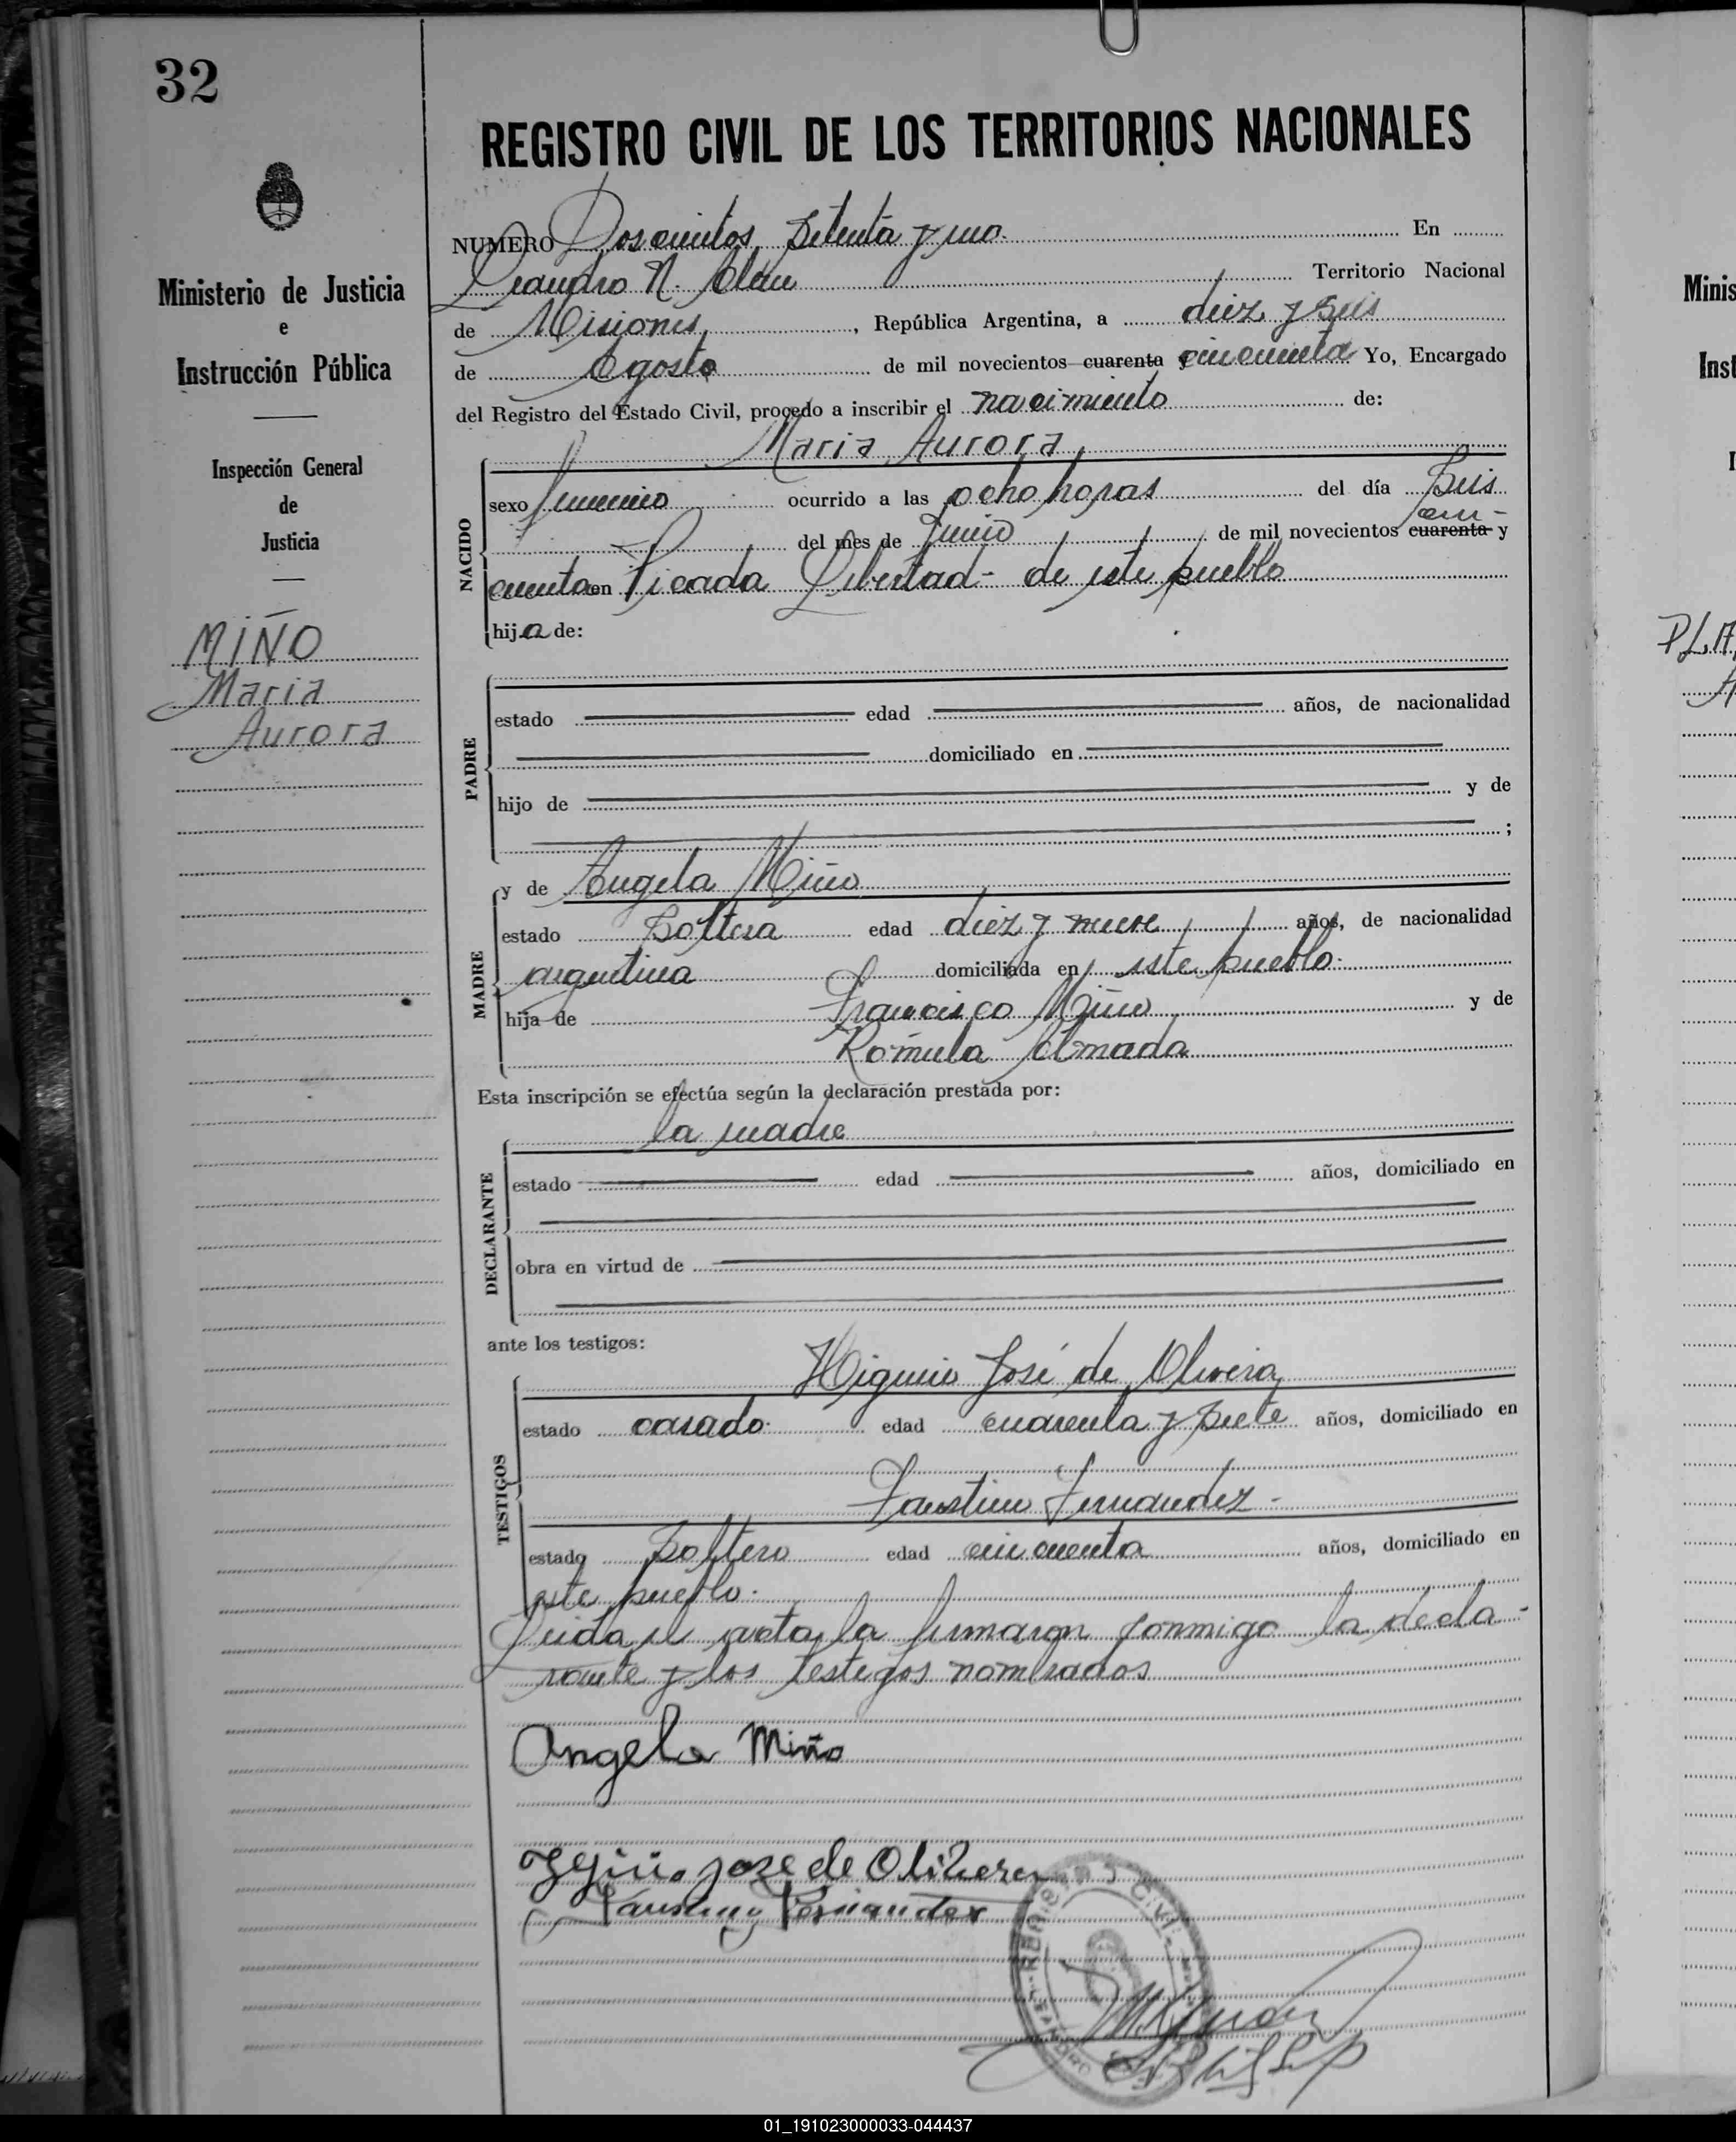 32
REGISTRO CIVIL DE LOS TERRITORIOS NACIONALES
Ministerio de Justicia
e
Instrucción Pública
Inspección General
de
Justicia
MIÑO
Maria
Aurora
NUMERO Doscientos setenta y uno. En
Leandro N. Alem Territorio Nacional
de Misiones, República Argentina, a diez y seis
de Agosto de mil novecientos cuarenta y cincuenta Yo, Encargado
del Registro del Estado Civil, procedo a inscribir el nacimiento de:
Maria Aurora
NACIDO
sexo femenino ocurrido a las ocho horas del día Seis
del mes de Junio de mil novecientos cuarenta y cin-
cuenta en Picada Libertad - de este pueblo
hija de:
PADRE
estado edad años, de nacionalidad
domiciliado en
hijo de y de
;
MADRE
y de Angela Miño
estado Soltera edad diez y nueve años, de nacionalidad
argentina domiciliada en este pueblo.
hija de Francisco Miño y de
Romula Almada
Esta inscripción se efectúa según la declaración prestada por:
la madre
DECLARANTE
estado edad años, domiciliado en
obra en virtud de
ante los testigos:
TESTIGOS
Higinio José de Oliveira
estado casado. edad cuarenta y siete años, domiciliado en
Faustino Fernandez -
estado Soltero edad cincuenta años, domiciliado en
este pueblo.
Leida el acta, la firmaron conmigo la decla-
rante y los testigos nombrados
Angela Miño
José de
Faustino Fernandez
REGISTRO CIVIL
LEANDRO
Minis
Inst
I
01_191023000033-044437